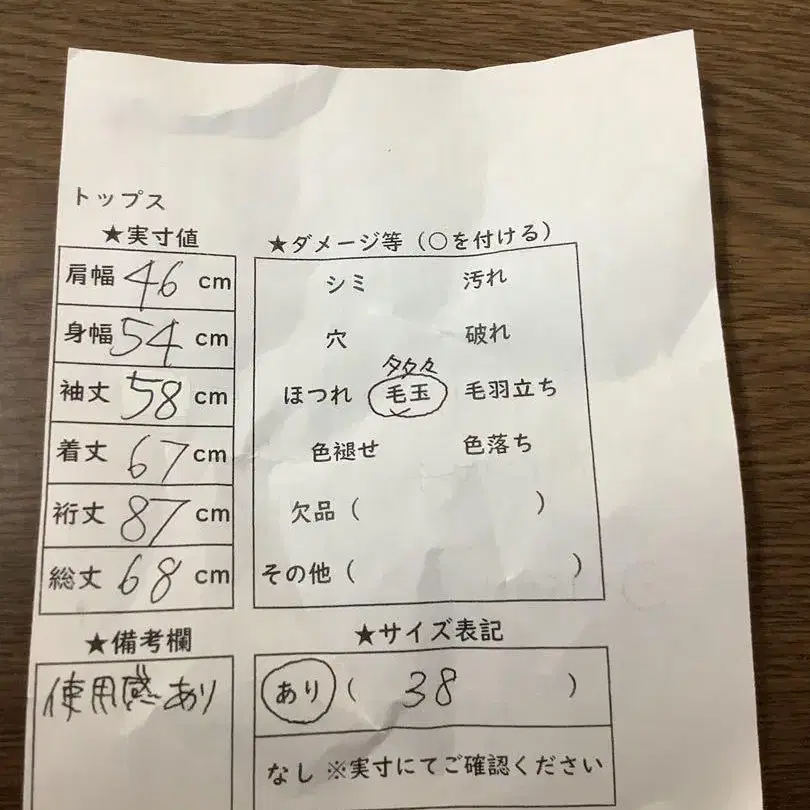 トップス
★実寸値
肩幅 46 cm
身幅 54 cm
袖丈 58 cm
着丈 67 cm
裄丈 87 cm
総丈 68 cm
★ダメージ等（○を付ける）
シミ 汚れ
穴 破れ
ほつれ 毛玉 毛羽立ち
色褪せ 色落ち
欠品（ ）
その他（ ）
★備考欄
使用感あり
★サイズ表記
あり（ 38 ）
なし ※実寸にてご確認ください